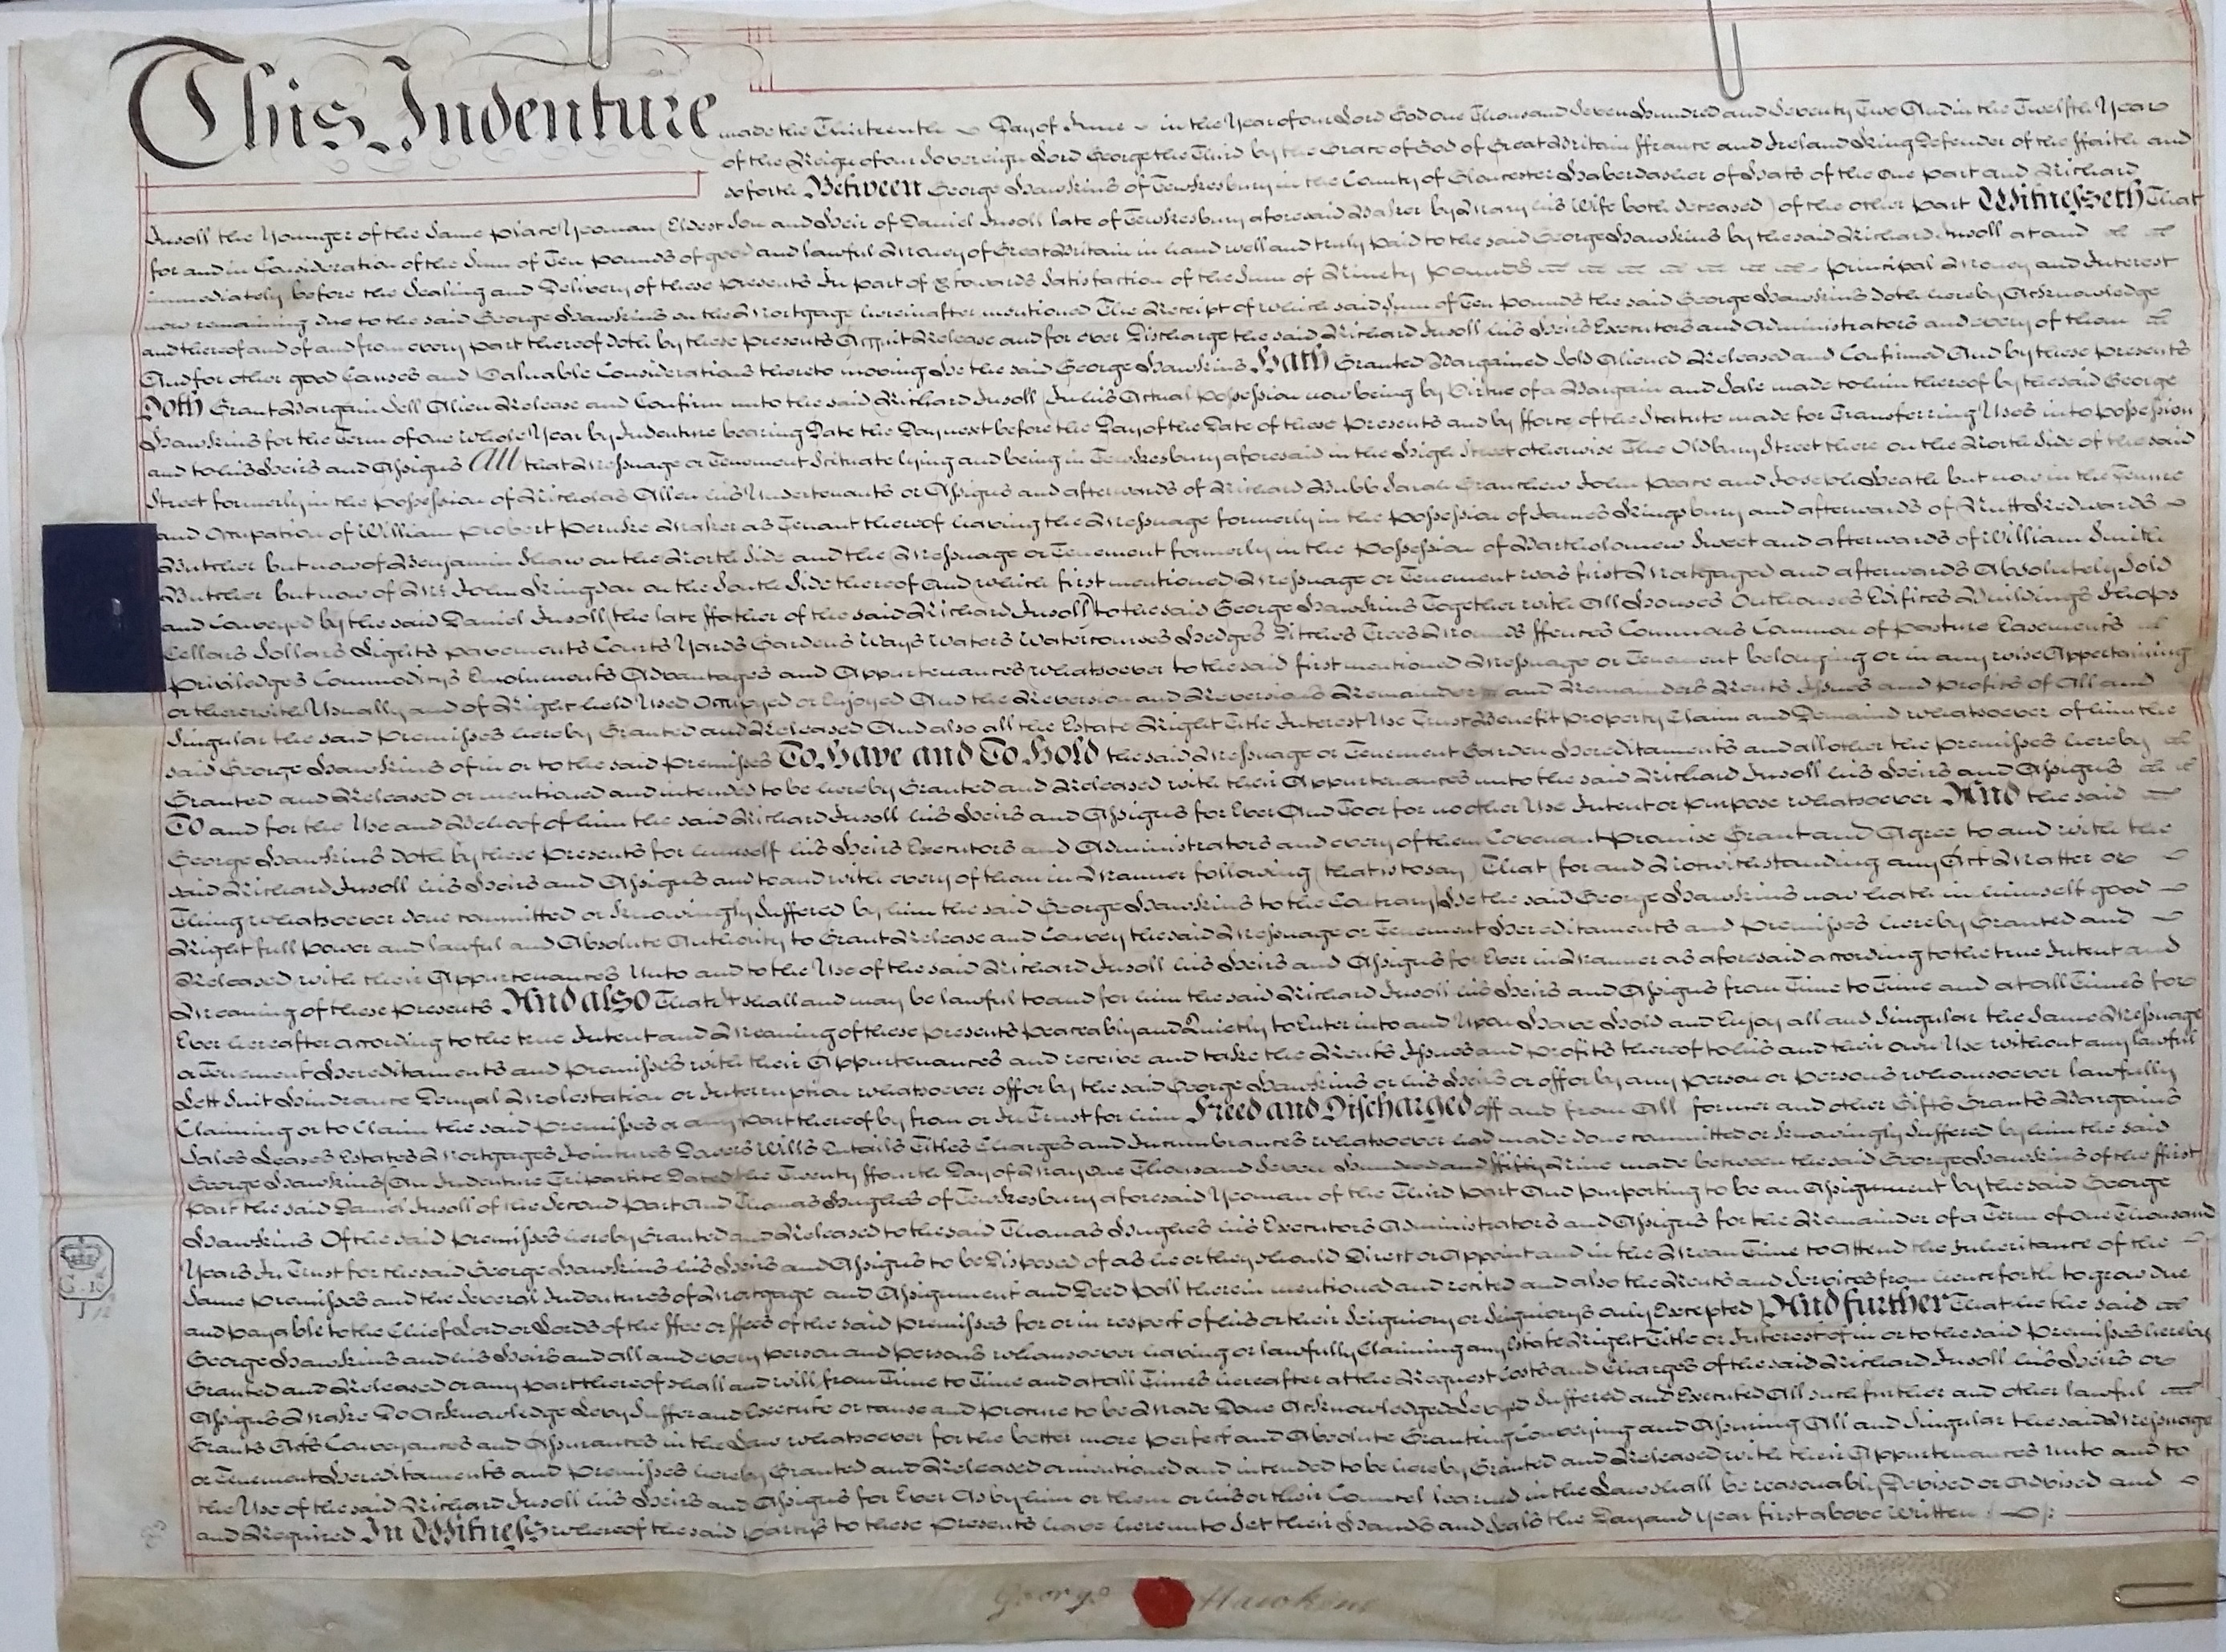 This Indenture made the Thirteenth Day of June in the Year of our Lord God One Thousand Seven Hundred and Seventy Two And in the Twelfth Year
of the Reign of our Sovereign Lord George the Third by the Grace of God of Great Britain ffrance and Ireland King Defender of the ffaith and
so forth Between George Hawkins of Tewkesbury in the County of Glocester Haberdasher of Hats of the One part and Richard
Insoll the Younger of the Same place Yeoman (Eldest Son and Heir of Daniel Insoll late of Tewkesbury aforesaid Baker by Mary his Wife both deceased) of the other part Witnesseth That
for and in Consideration of the Sum of Ten pounds of good and lawful Money of Great Britain in hand well and truly paid to the said George Hawkins by the said Richard Insoll at and
immediately before the Sealing and Delivery of these presents In part of & towards Satisfaction of the Sum of Ninety pounds principal Money and Interest
now remaining due to the said George Hawkins on the Mortgage hereinafter mentioned The Receipt of which said Sum of Ten pounds the said George Hawkins doth hereby Acknowledge
and thereof and of and from every part thereof doth by these presents Acquit Release and for ever Discharge the said Richard Insoll his Heirs Executors and Administrators and every of them
And for other good Causes and Valuable Considerations thereto moving He the said George Hawkins Hath Granted Bargained Sold Aliened Released and Confirmed And by these presents
Doth Grant Bargain Sell Alien Release and Confirm unto the said Richard Insoll (In his Actual possession now being by Virtue of a Bargain and Sale made to him thereof by the said George
Hawkins for the Term of One whole Year by Indenture bearing Date the Day next before the Day of the Date of these presents and by fforce of the Statute made for Transferring Uses into possession)
and to his Heirs and Assigns All that Messuage or Tenement Scituate lying and being in Tewkesbury aforesaid in the High Street otherwise The Oldbury Street there on the North Side of the said
Street formerly in the possession of Nicholas Allen his Undertenants or Assigns and afterwards of Richard Bubb Sarah John Peare and Joseph Heath but now in the Tenure
and Occupation of William Probert Peruke Maker as Tenant thereof having the Messuage formerly in the possession of James Kingsbury and afterwards of
Butcher but now of Benjamin Shaw on the North Side and the Messuage or Tenement formerly in the possession of Bartholomew Sweet and afterwards of William Smith
Butcher but now of Mr. John Kingdon on the South Side thereof And (which first mentioned Messuage or Tenement was first Mortgaged and afterwards Absolutely Sold
and Conveyed by the said Daniel Insoll (the late ffather of the said Richard Insoll) to the said George Hawkins Together with All Houses Outhouses Edifices Buildings Shops
Cellars Sollars Lights pavements Courts Yards Gardens Ways Waters Watercourses Hedges Ditches Trees Mounds ffences Commons Common of pasture Easements
priviledges Commoditys Emoluments Advantages and Appurtenances whatsoever to the said first mentioned Messuage or Tenement belonging or in any wise Appertaining
or therewith Usually and of Right held Used Occupyed or Enjoyed And the Reversion and Reversions Remainder and Remainders Rents Issues and profits of All and
Singular the said premisses hereby Granted and Released And also all the Estate Right Title Interest Use Trust Benefit property Claim and Demand whatsoever of him the
said George Hawkins of in or to the said premisses To Have and To Hold the said Messuage or Tenement Garden Hereditaments and all other the premisses hereby
Granted and Released or mentioned and intended to be hereby Granted and Released with their Appurtenances unto the said Richard Insoll his Heirs and Assigns
To and for the Use and Behoof of him the said Richard Insoll his Heirs and Assigns for Ever And To or for no other Use Intent or purpose whatsoever And the said
George Hawkins doth by these presents for himself his Heirs Executors and Administrators and every of them Covenant promise Grant and Agree to and with the
said Richard Insoll his Heirs and Assigns and to and with every of them in Manner following (that is to say) That (for and Notwithstanding any Act Matter or
Thing whatsoever done committed or knowingly Suffered by him the said George Hawkins to the Contrary) He the said George Hawkins now hath in himself good
Right full power and lawful and Absolute Authority to Grant Release and Convey the said Messuage or Tenement Hereditaments and premisses hereby Granted and
Released with their Appurtenances Unto and to the Use of the said Richard Insoll his Heirs and Assigns for Ever in Manner as aforesaid according to the true Intent and
Meaning of these presents And also That it shall and may be lawful to and for him the said Richard Insoll his Heirs and Assigns from Time to Time and at all Times for
Ever hereafter according to the true Intent and Meaning of these presents peaceably and Quietly to Enter into and Upon Have Hold and Enjoy all and Singular the Same Messuage
or Tenement Hereditaments and premisses with their Appurtenances and receive and take the Rents Issues and profits thereof to his and their own Use without any lawful
Lett Suit Hindrance Denyal Molestation or Interruption whatsoever off or by the said George Hawkins or his Heirs or off or by any person or persons whomsoever lawfully
Claiming or to Claim the said premisses or any part thereof by from or In Trust for him Freed and Discharged off and from All former and other Gifts Grants Bargains
Sales Leases Estates Mortgages Jointures Dowers Wills Entails Titles Charges and Incumbrances whatsoever had made done committed or knowingly Suffered by him the said
George Hawkins (An Indenture Tripartite Dated the Twenty ffourth Day of May One Thousand Seven Hundred and ffifty Nine made between the said George Hawkins of the ffirst
part the said Daniel Insoll of the Second part And Thomas Hughes of Tewkesbury aforesaid Yeoman of the Third part And purporting to be an Assignment by the said George
Hawkins Of the said premisses hereby Granted and Released to the said Thomas Hughes his Executors Administrators and Assigns for the Remainder of a Term of One Thousand
Years In Trust for the said George Hawkins his Heirs and Assigns to be Disposed of as he or they should Direct or Appoint and in the Mean Time to Attend the Inheritance of the
Same premisses and the several Indentures of Mortgage and Assignment and Deed poll therein mentioned and recited and also the Rents and Services from henceforth to grow due
and payable to the Chief Lord or Lords of the ffee or ffees of the said premisses for or in respect of his or their Seigniory or Seigniorys only Excepted) And further That he the said
George Hawkins and his Heirs and all and every person and persons whomsoever having or lawfully Claiming any Estate Right Title or Interest of in or to the said premisses hereby
Granted and Released or any part thereof shall and will from Time to Time and at all Times hereafter at the Request Costs and Charges of the said Richard Insoll his Heirs or
Assigns Make Do Acknowledge Levy Suffer and Execute or cause and procure to be Made Done Acknowledged Levyed Suffered and Executed All such further and other lawful
Grants Acts Conveyances and Assurances in the Law whatsoever for the better more perfect and Absolute Granting Conveying and Assuring All and Singular the said Messuage
or Tenement Hereditaments and premisses hereby Granted and Released or mentioned and intended to be hereby Granted and Released with their Appurtenances unto and to
the Use of the said Richard Insoll his Heirs and Assigns for Ever As by him or them or his or their Counsel learned in the Law shall be reasonably Devised or Advised and
and Required In Witness whereof the said partys to these presents have hereunto Set their Hands and Seals the Day and Year first above Written
George Hawkins